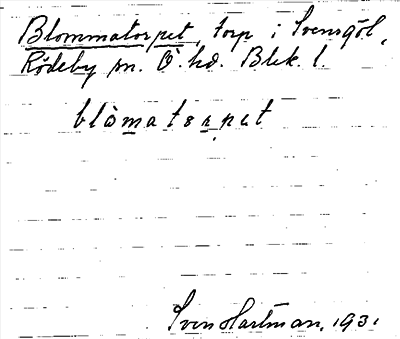 Blommatorpet, torp i Svensgöl,
Rödeby sn. Ö. hd. Blek. l.
blòmatərpət
Sven Hartman, 1931